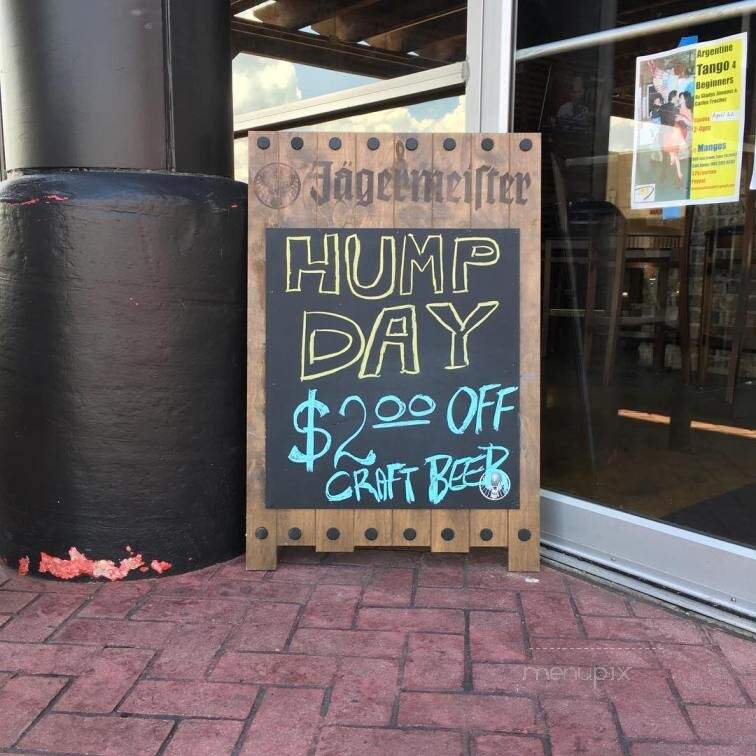 Jägermeister
HUMP
DAY
$2.00 OFF
CRAFT BEER
Argentine
Tango 4
Beginners
2-4pm
Mangos
menupix